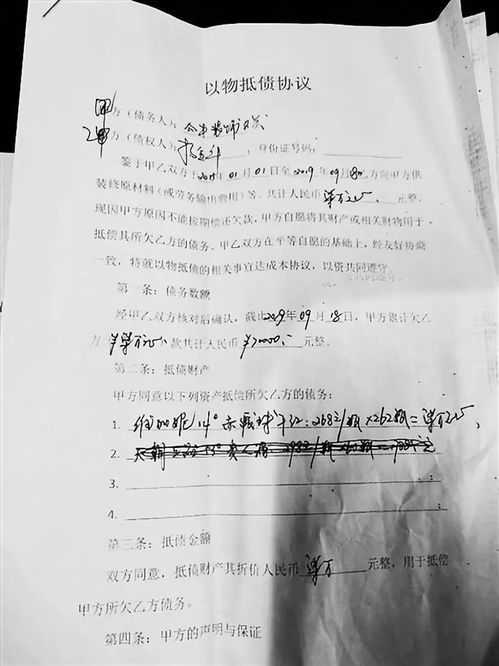 以物抵债协议
甲方（债务人）：
乙方（债权人）： ，身份证号码：
鉴于甲乙双方 01月01日至2019年09月18日乙方向甲方供
装修原材料（或劳务输出费用）等，共计人民币 柒万元 元整，
现因甲方原因不能按期偿还欠款，甲方自愿将其财产或相关财物用于
抵偿其所欠乙方的债务。甲乙双方在平等自愿的基础上，经友好协商
一致，特就以物抵债的相关事宜达成本协议，以资共同遵守。
第一条：债务数额
经甲乙双方核对后确认，截止2019年09月18日，甲方累计欠乙
方 款共计人民币 ¥70000 元整。
第二条：抵偿财产
甲方同意以下列资产抵偿所欠乙方的债务：
1. 14° 干红：268元/瓶×262瓶=柒万元
2.
3.
4.
第三条：抵债金额
双方同意，抵债财产共折价人民币 柒万 元整，用于抵偿
甲方所欠乙方债务。
第四条：甲方的声明与保证